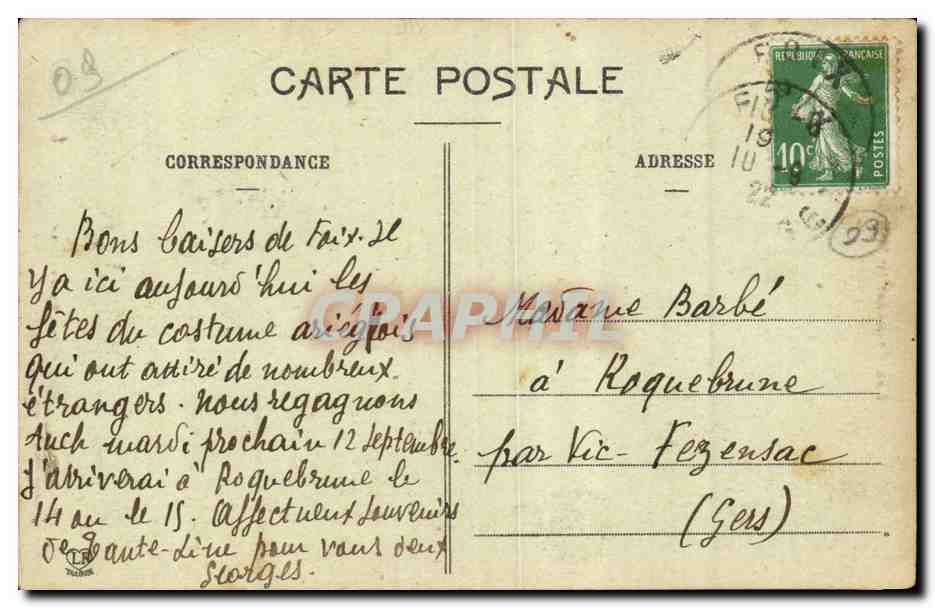 09
CARTE POSTALE
RÉPUBLIQUE FRANÇAISE
10c
POSTES
FOIX
19
10 - 9
22
09
CORRESPONDANCE
ADRESSE
Bons baisers de Foix. Il
y a ici aujourd'hui les
fêtes du costume ariégeois
qui ont attiré de nombreux
étrangers. Nous regagnons
Auch mardi prochain 12 septembre.
J'arriverai à Roquebrune le
14 ou le 15. Affectueux souvenirs
de Tante-Line pour vous deux
Georges.
Madame Barbé
à Roquebrune
par Vic-Fezensac
(Gers)
CRAPHIL